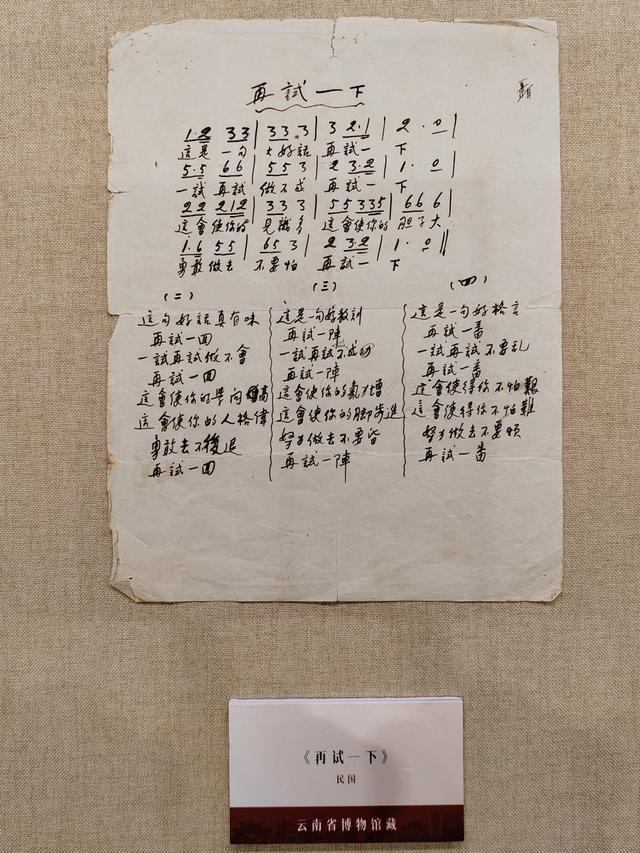 再試一下
1·2 33|33 3|3 2·1|2 · 0|
這是一句 大好話 再試一 下
5·5 66|55 3|2 3·2|1 · 0|
一試再試 做不成 再試一 下
22 212|33 3|55 335|66 6|
這會使你的 見識多 這會使你的 胆子大
1·6 55|65 3|2 3·2|1 · 0‖
勇敢做去 不要怕 再試一 下
(二)
這句好話真有味
再試一回
一試再試做不會
再試一回
這會使你的學问高
這會使你的人格偉
勇敢去不後退
再試一回
(三)
這是一句好教訓
再試一陣
一試再試不成功
再試一陣
這會使你的氣力增
這會使你的脚步進
努力做去不要
再試一陣
(四)
這是一句好格言
再試一番
一試再試不要乱
再試一番
這會使得你不怕艱
這會使得你不怕難
努力做去不要煩
再試一番
《再试一下》
民国
云南省博物馆藏